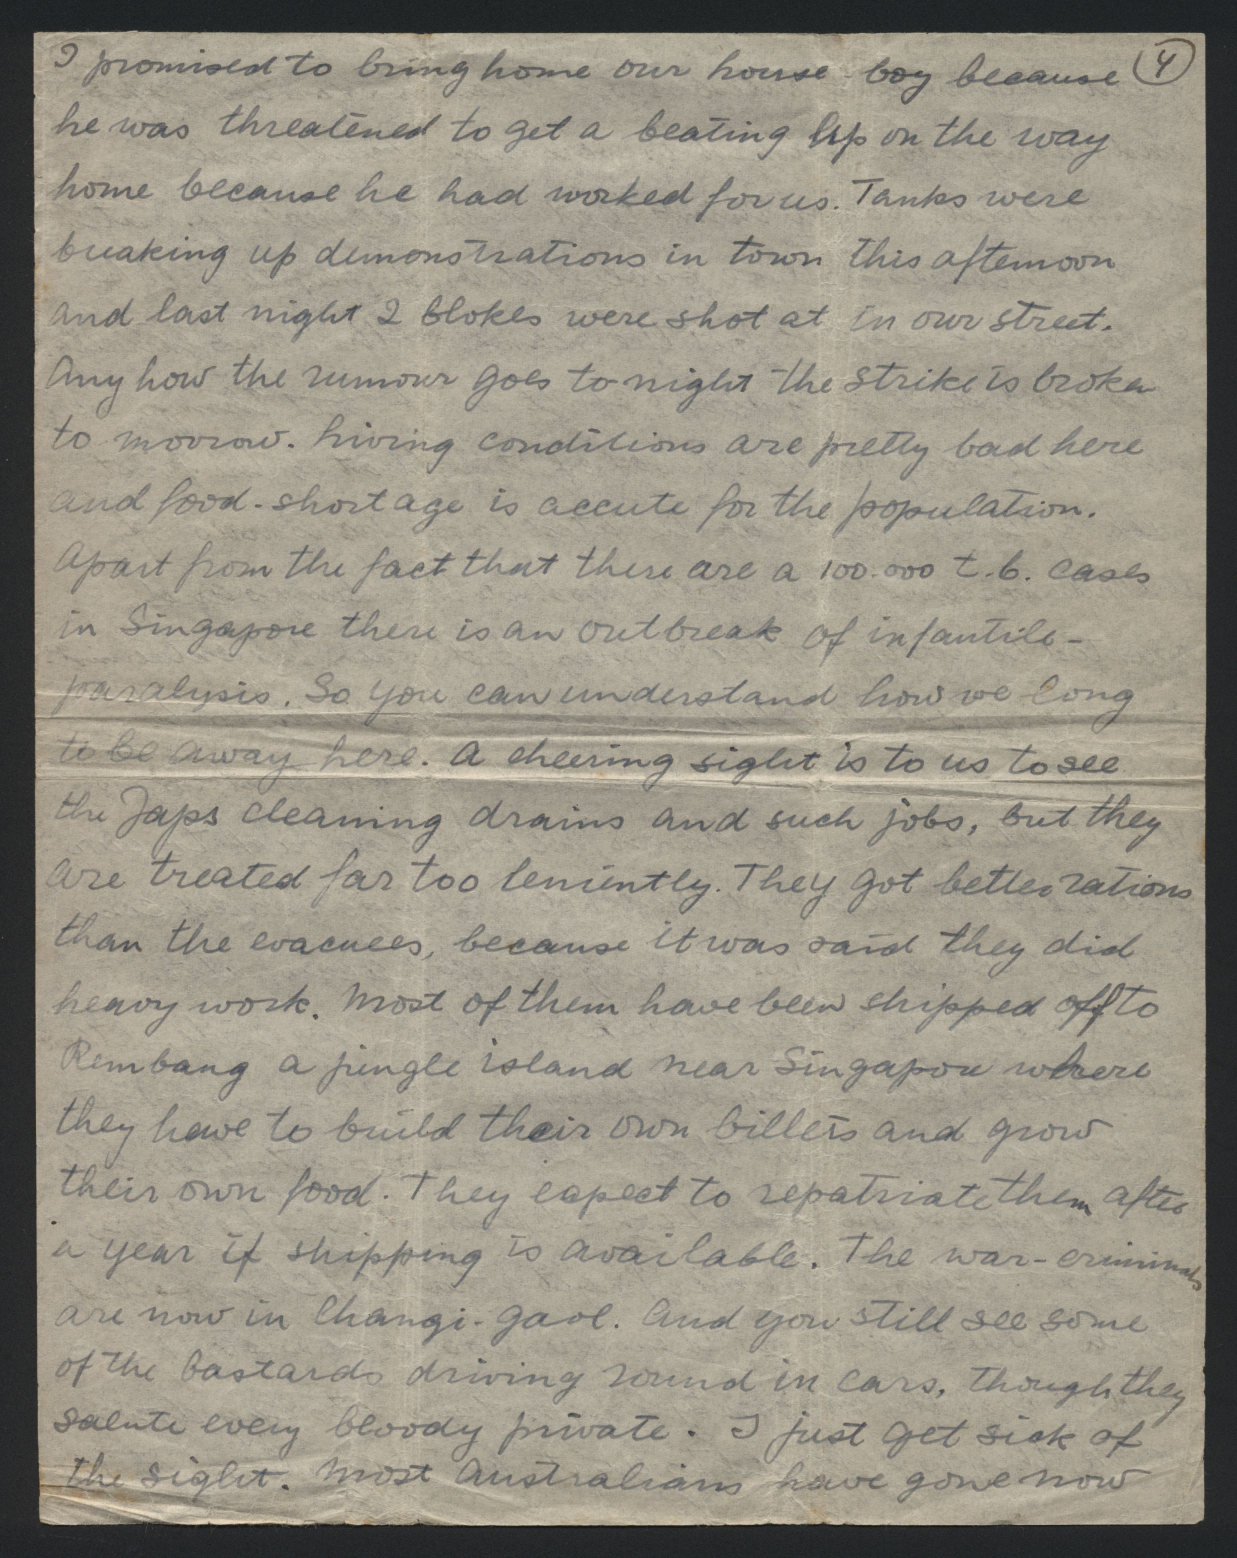 4
I promised to bring home our house-boy because
he was threatened to get a beating up on the way
home because he had worked for us. Tanks were
breaking up demonstrations in town this afternoon
and last night 2 blokes were shot at in our street.
Any how the rumour goes to-night the strike is broken
to morrow. Living conditions are pretty bad here
and food-shortage is accute for the population.
Apart from the fact that there are a 100.000 t.b. cases
in Singapore there is an outbreak of infantile-
paralysis. So you can understand how we long
to be away here. A cheering sight is to us to see
the Japs cleaning drains and such jobs, but they
are treated far too leniently. They got better rations
than the evacuees, because it was said they did
heavy work. Most of them have been shipped off to
Rembang a jungle island near Singapore where
they have to build their own billets and grow
their own food. They expect to repatriate them after
a year if shipping is available. The war-criminals
are now in Changi-gaol. And you still see some
of the bastards driving round in cars, though they
salute every bloody private. I just get sick of
the sight. Most Australians have gone now